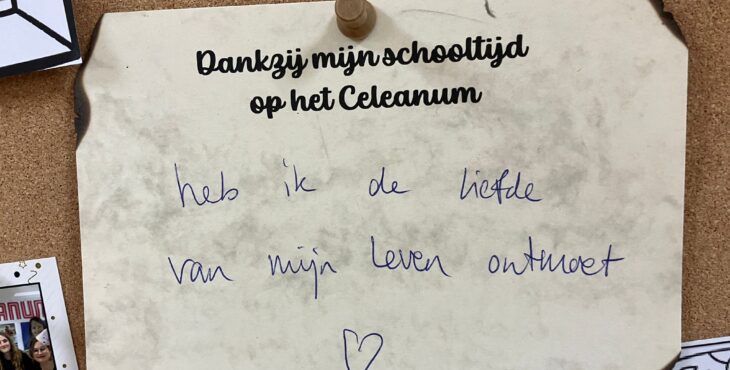 Dankzij mijn schooltijd
op het Celeanum
heb ik de liefde
van mijn leven ontmoet
ANUM